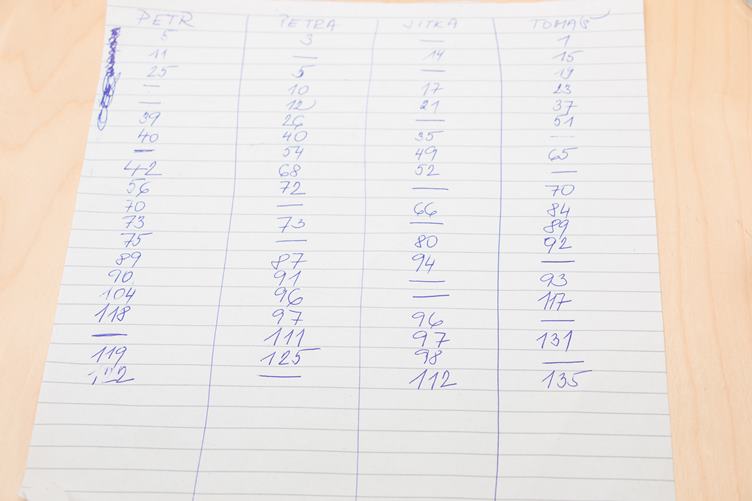 PETR PETRA JITKA TOMÁŠ
5 3 — 1
11 — 14 15
25 5 — 19
— 10 17 23
— 12 21 37
39 26 — 51
40 40 35 —
— 54 49 65
42 68 52 —
56 72 — 70
70 — 66 84
73 73 — 89
75 — 80 92
89 87 94 —
90 91 — 93
104 96 — 117
118 97 96 —
— 111 97 131
119 125 98 —
— 112 135